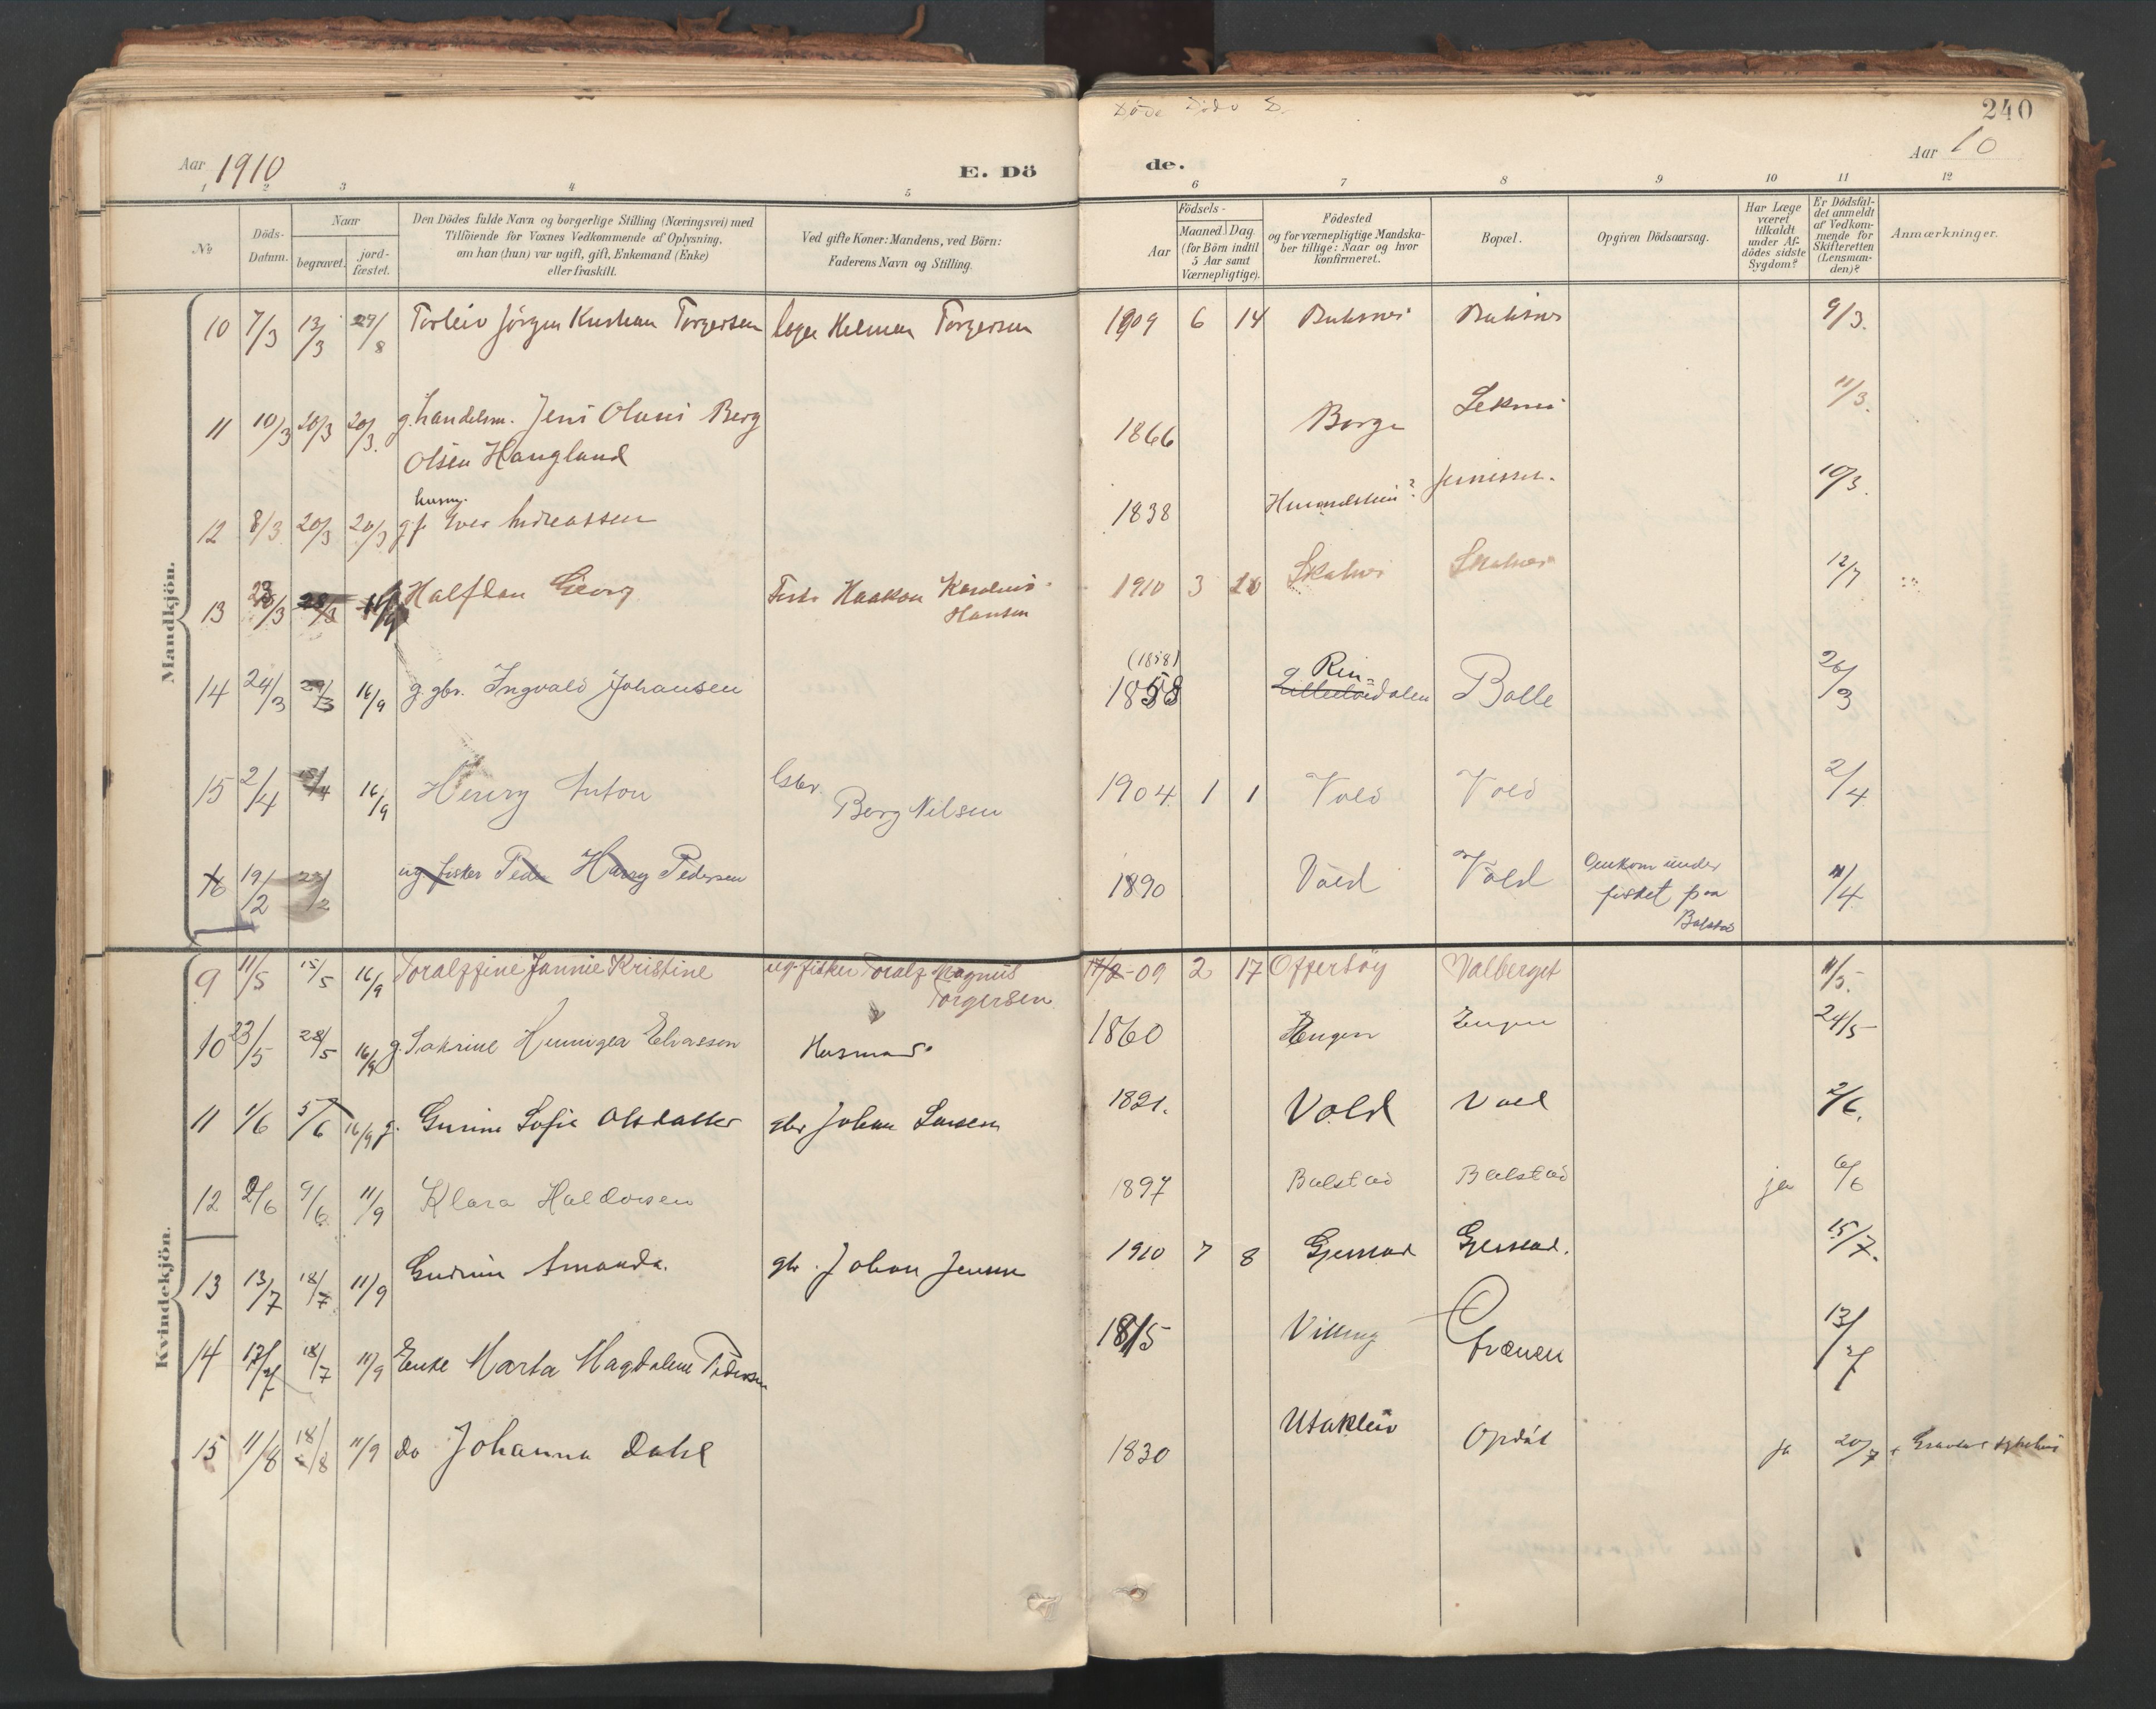 Aar 1910
E. Dö
de.
240
Aar 10
1 2 3 4 5 6 7 8 9 10 11 12
№
Döds-
Datum.
Naar
begravet.
jord-
fæstet.
Den Dödes fulde Navn og borgerlige Stilling (Næringsvei) med
Tilföiende for Voxnes Vedkommende af Oplysning,
om han (hun) var ugift, gift, Enkemand (Enke)
eller fraskilt.
Ved gifte Koner: Mandens, ved Börn:
Faderens Navn og Stilling.
Födsels-
Aar
Maaned. Dag.
(for Börn indtil
5 Aar samt
Værnepligtige).
Födested
og for værnepligtige Mandska-
ber tillige: Naar og hvor
konfirmeret.
Bopæl.
Opgiven Dödsaarsag.
Har Læge
været
tilkaldt
under Af-
dödes sidste
Sygdom?
Er Dödsfal-
det anmeldt
af Vedkom-
mende for
Skifteretten
(Lensman-
den)?
Anmærkninger.
Mandkjön.
10 7/3 13/3 29/8 Torleiv Jörgen Kristian Torgersen Torgersen 1909 6 14 Buksnes Buksnes 9/3.
11 10/3 20/3 20/3. g. handelsm. Jens Olaus Berg 1866 Borge Leknes 11/3.
Olsen Haugland
husm.
12 8/3 20/3 20/3 g. f. Iver Andreassen 1838 10/3.
13 23/3 28/3 Halfdan Georg Haakon Karelius 1910 3 Skatnes Skatnes 12/7
Hansen
(1858)
14 24/3 29/3 16/9 g. gbr. Ingvald Johansen 1858 Rin-dalen Bolle 26/3
15 2/4 16/9 Henry Anton Berg Nilsen 1904 1 1 Vold Vold 2/4
16 19/2 ug. fisker Peder Harry Pedersen 1890 Vold Vold Omkom under 11/4
fisket paa
Balstad
Kvindekjön.
9 11/5 15/5 16/9 Toralffine Jannie Kristine ug. fisker Toralf Magnus 17/2-09 2 17 Offersöy Valberget 11/5-
Torgersen
10 23/5 28/5 16/9 g. Sakrine Henningea Eliassen Husmand 1860 Engen Engen 24/5
11 1/6 5/6 16/9 g. Gurine Sofie Olsdatter gbr Johan Larsen 1821. Vold Vold 2/6.
12 2/6 9/6 11/9 Klara Haldorsen 1897 Balstad Balstad ja 6/6
13 13/7 18/7 11/9 Gudrun Amanda. gbr. Johan Jensen 1910 7 8 Gjerstad Gjerstad. 15/7.
14 12/7 18/7 11/9 Enke Marta Magdalene Pedersen 1815 13/7
15 11/8 18/8 11/9 do Johanna Dahl 1830 Utakleiv Opdöl ja 20/7 Gravdal sykehus